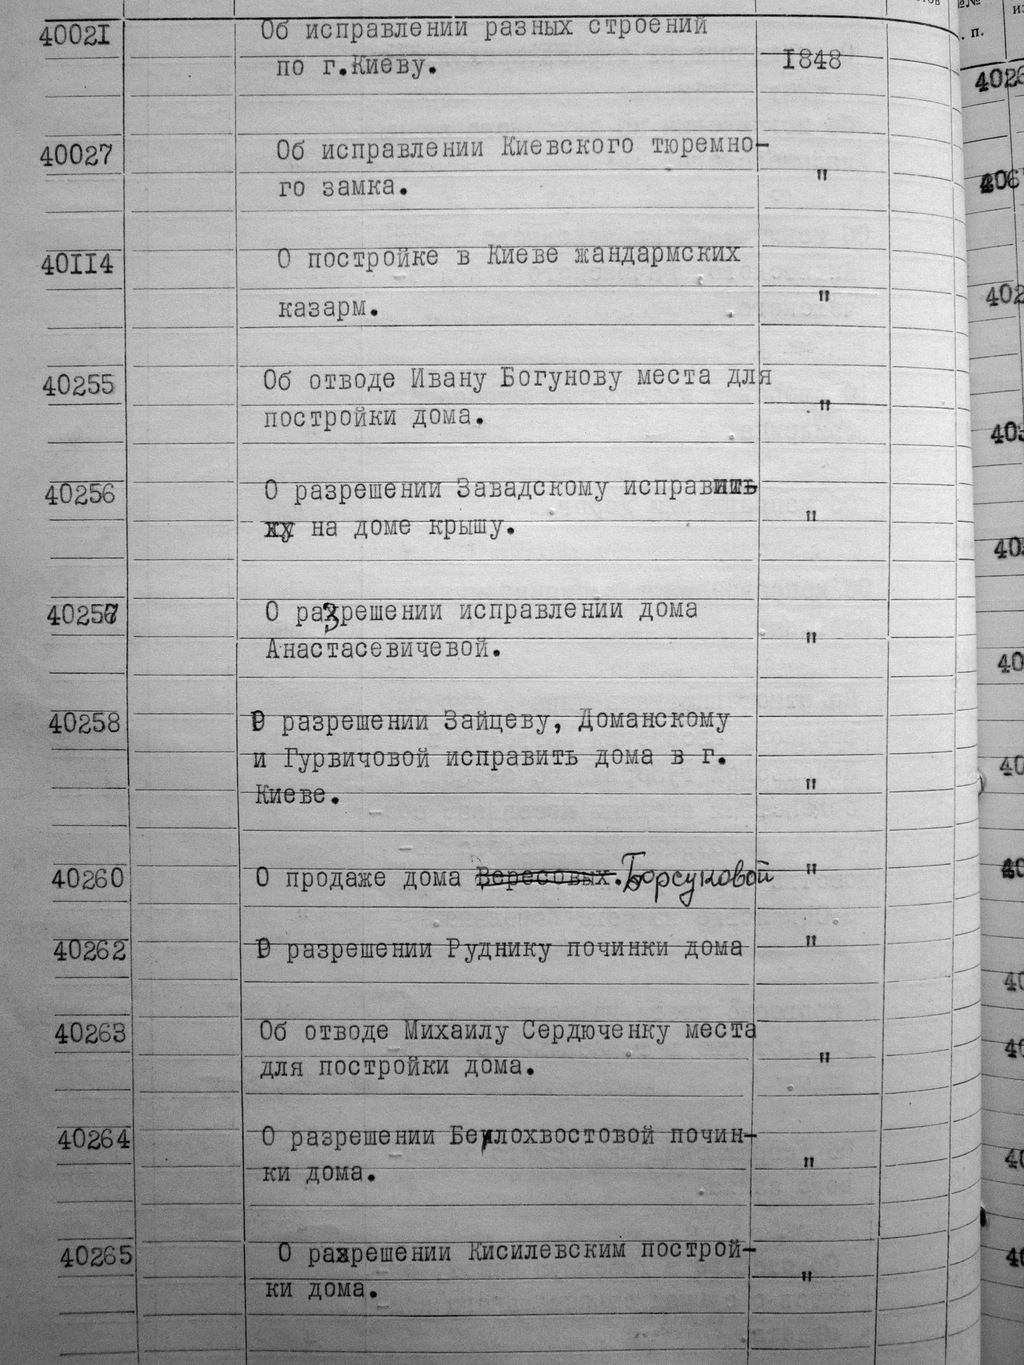 40021 Об исправлении разных строений
по г.Киеву. 1848
40027 Об исправлении Киевского тюремно-
го замка. "
40II4 О постройке в Киеве жандармских
казарм. "
40255 Об отводе Ивану Богунову места для
постройки дома. "
40256 О разрешении Завадскому исправить
на доме крышу. "
40257 О разрешении исправлении дома
Анастасевичевой. "
40258 О разрешении Зайцеву, Доманскому
и Гурвичовой исправить дома в г.
Киеве. "
40260 О продаже дома Вересовых. Борсуковой "
40262 О разрешении Руднику починки дома "
40263 Об отводе Михаилу Сердюченку места
для постройки дома. "
40264 О разрешении Белохвостовой почин-
ки дома. "
40265 О разрешении Кисилевским построй-
ки дома. "